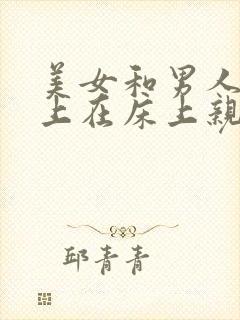 美女和男人
上在床上親
邱青青